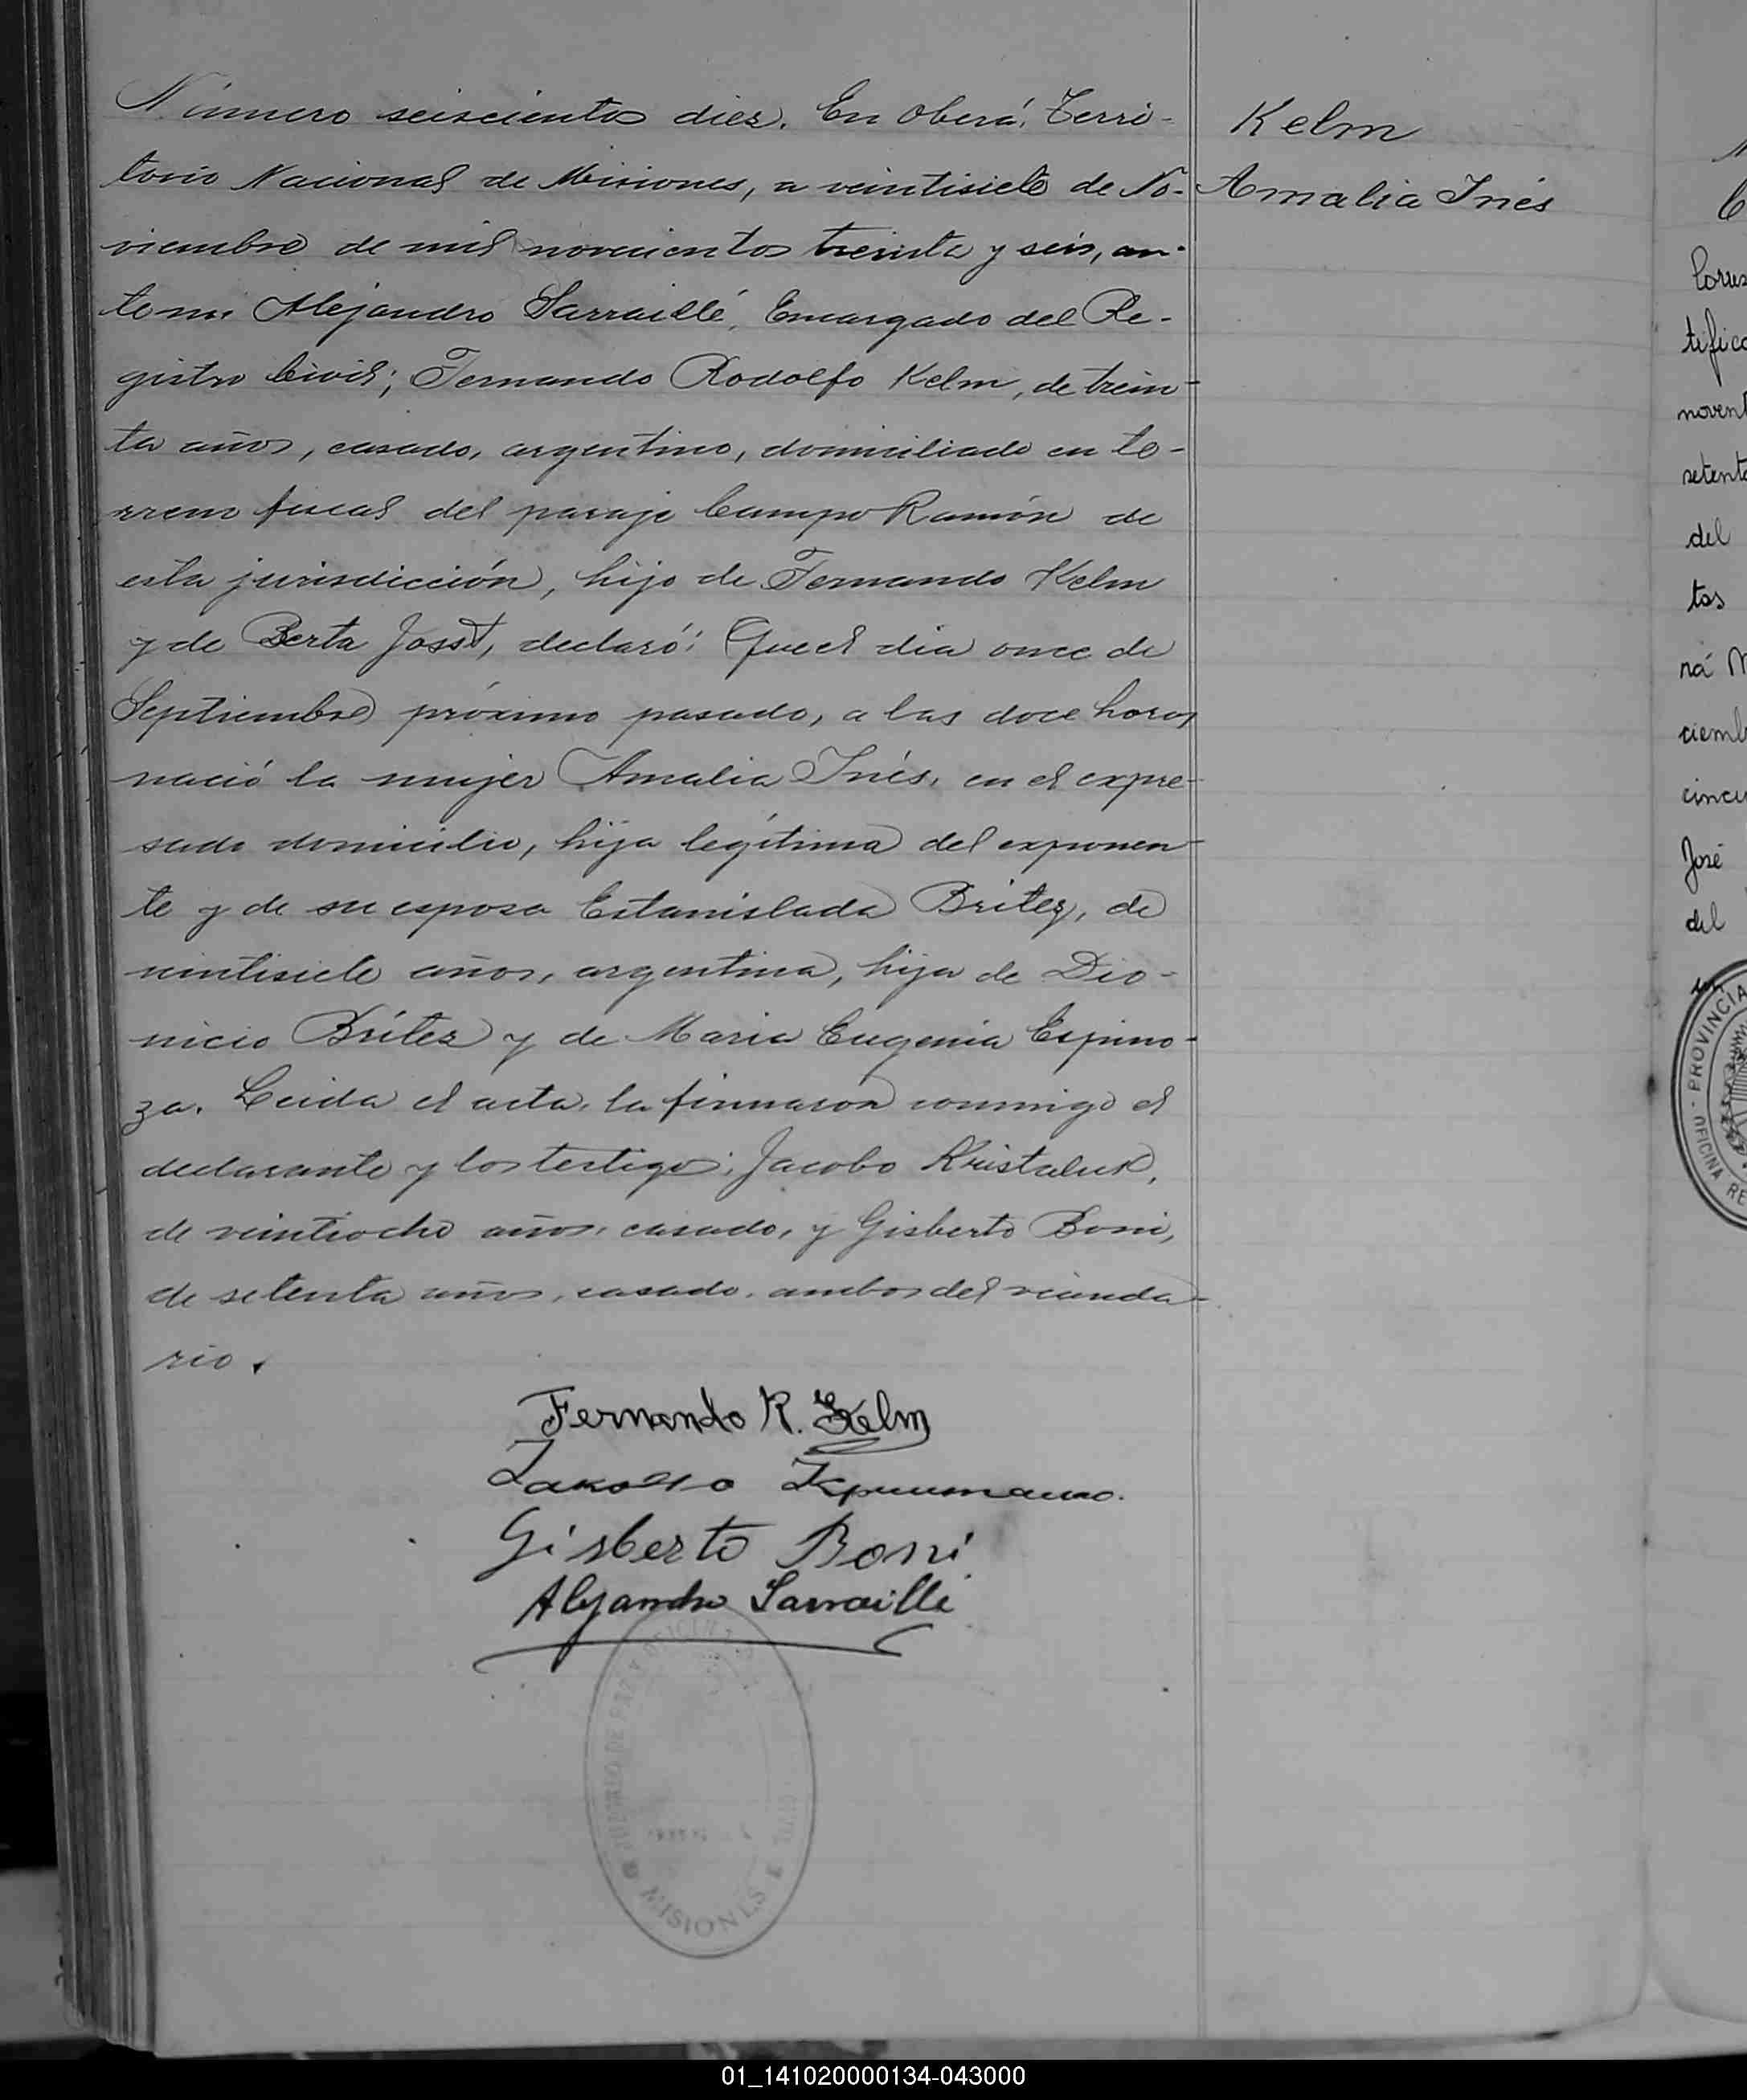 Número seiscientos diez. En Oberá, Terri-
torio Nacional de Misiones, a veintisiete de No-
viembre de mil novecientos treinta y seis, an-
te mi Alejandro Sarraillé, Encargado del Re-
gistro Civil; Fernando Rodolfo Kelm, de trein-
ta años, casado, argentino, domiciliado en te-
rreno fiscal del paraje Campo Ramón de
esta jurisdicción, hijo de Fernando Kelm
y de Berta Josst, declaró: Que el dia once de
Septiembre próximo pasado, a las doce horas
nació la mujer Amalia Inés, en el expre-
sado domicilio, hija legítima del exponen-
te y de su esposa Estanislada Britez, de
veintisiete años, argentina, hija de Dio-
nicio Britez y de Maria Eugenia Espino-
za. Leida el acta, la firmaron conmigo el
declarante y los testigos: Jacobo Kristaluk,
de veintiocho años, casado, y Gisberto Boni,
de setenta años, casado, ambos del vecinda-
rio.
Fernando R. Kelm
Gisberto Boni
Alejandro Sarraillé
MISIONES
Kelm
Amalia Inés
tific
novent
setent
del
tos
ná M
ciemb
cincu
José
del
PROVINCIA
OFICINA RE
01_141020000134-043000